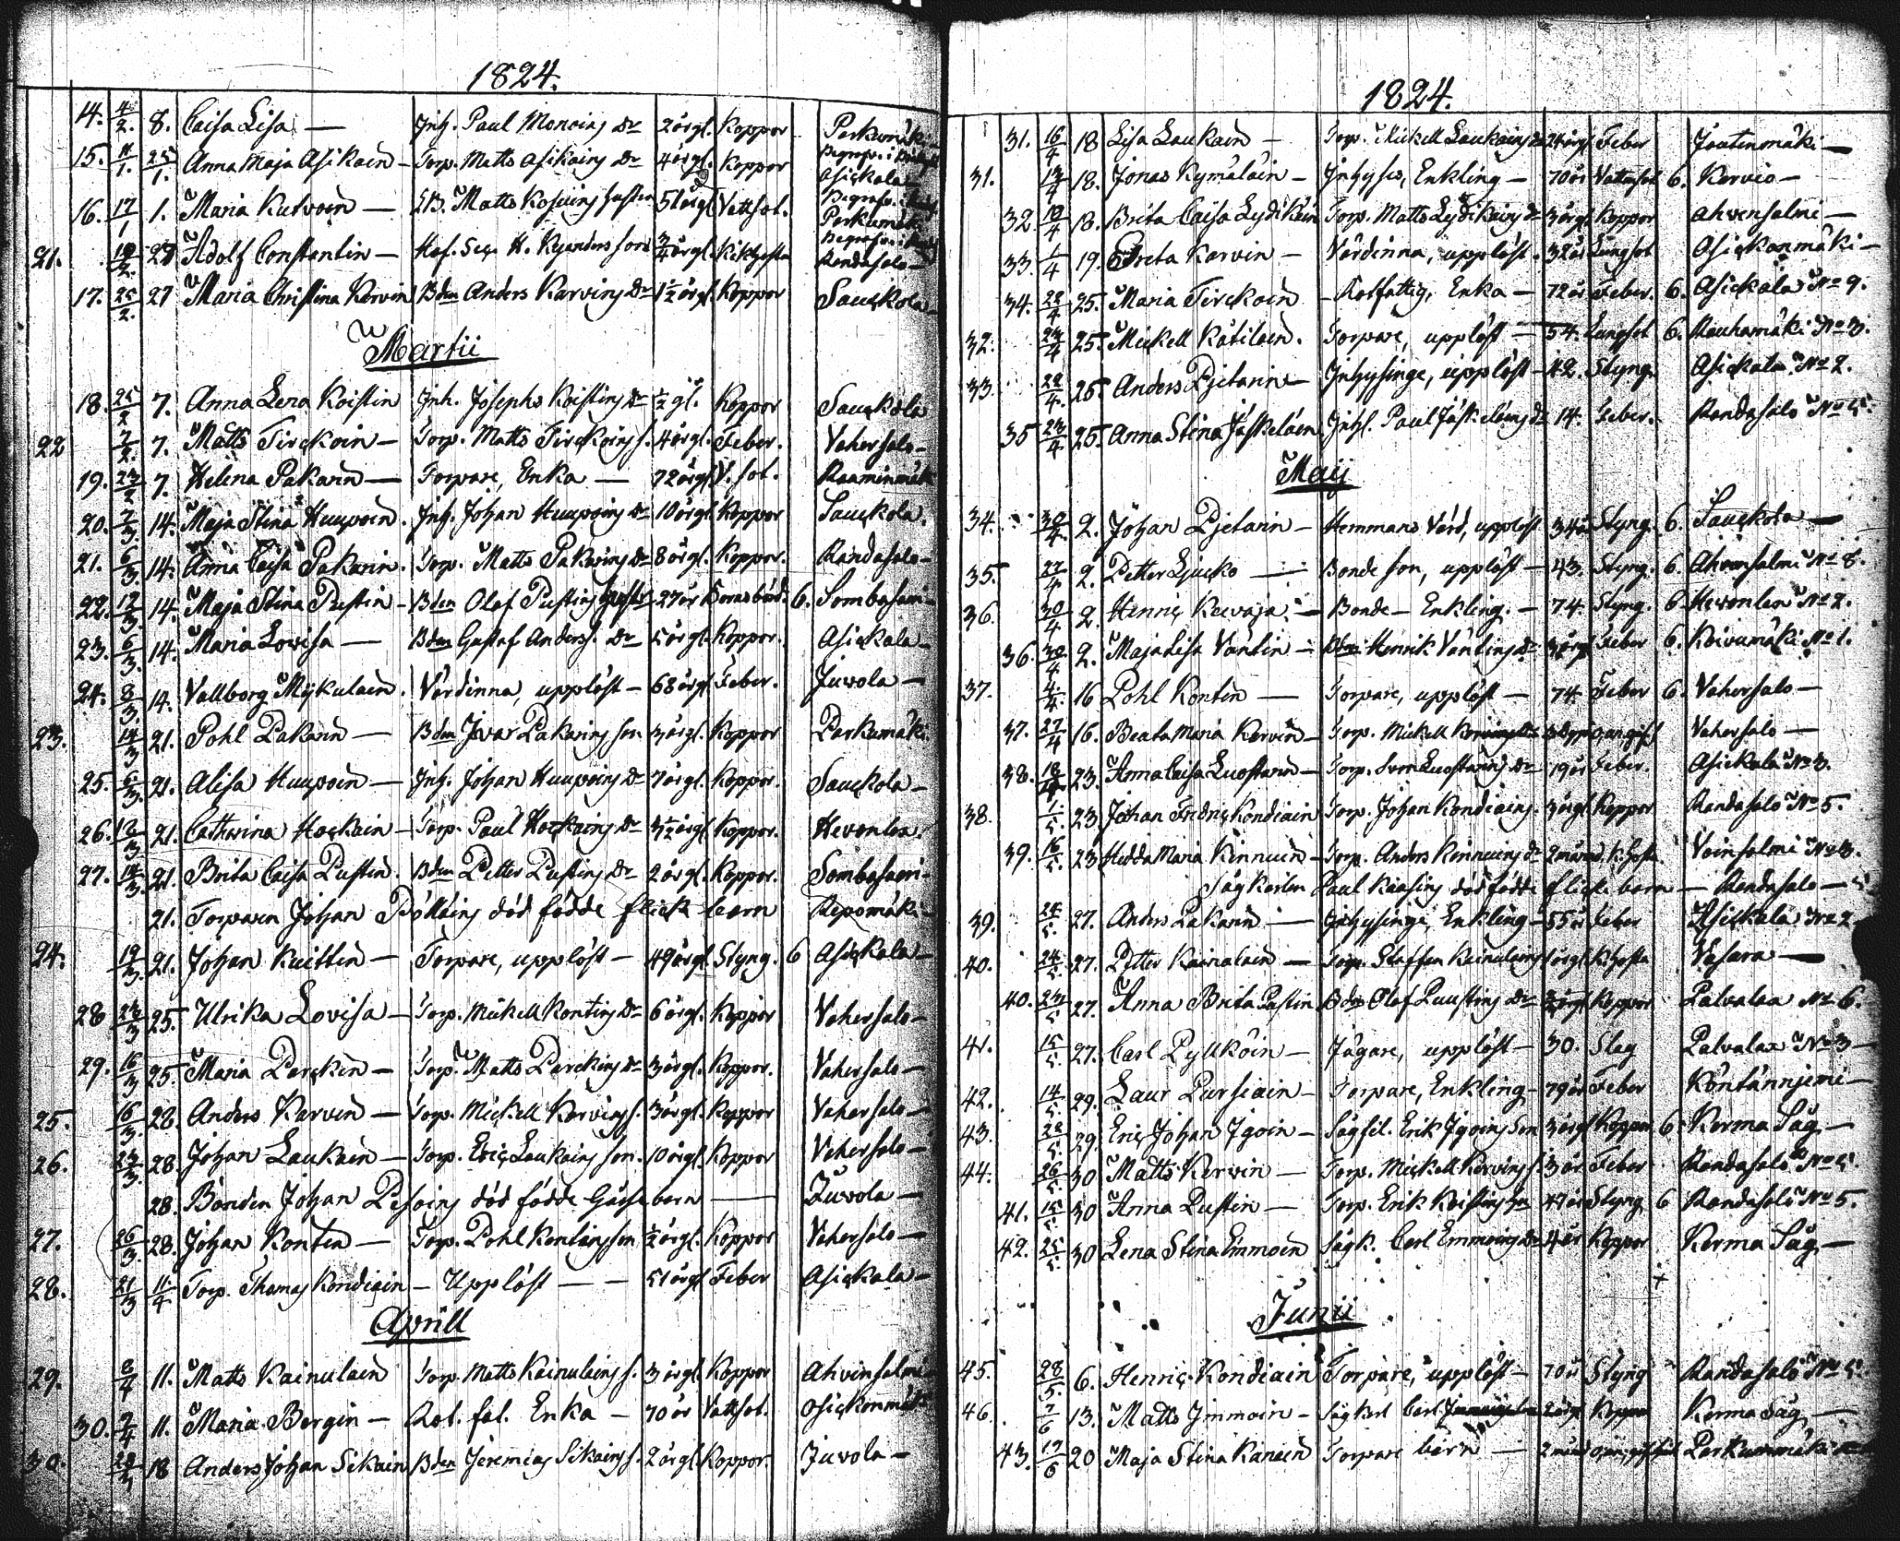 1824.
14. 4/2. 8. Caisa Lisa — Inh. Paul Monoins Dr 2 årgl. Koppor Perkumäki
15. 11/1. 25/1. Anna Maja Asikain — Torp. Matts Asikains Dr 4 årgl. Koppor Asickala
16. 17/1 1. Maria Kutvoin — Matts hustru 51 årgl Vattsot. Perkumäki
21. 19/2. 27 Adolf Constantin — H. son 3/4 årgl. Kikhosta Randasalo —
17. 25/2. 27 Maria Christina Karvin Bden Anders Karvins Dr 1 1/2 årgl. Koppor Sauckola —
Martii
18. 25/2 7. Anna Lena Koistin Inh. Josephs Koistins Dr 1/2 gl. Koppor Sauckola
22 7/2. 7. Matts Tirckoin — Torp. Matts Tirckoins s. 4 årgl. Feber. Vehersalo —
19. 23/2 7. Helena Pakarin — Torpare, Enka — 72 årgl V. sot. Raaminmäki
20. 7/3 14. Maja Stina Huupoin. Inh. Johan Huupoins Dr 10 årgl. Koppor Sauckola.
21. 6/3 14. Anna Caisa Pakarin. Torp. Matts Pakarins Dr 8 årgl. Koppor. Randasalo —
22. 12/3. 14. Maja Stina Pustin — Bden Olof Pustins hustr 27 år Barnsbörd. 6. Sombasaari —
23. 6/3 14. Maria Lovisa — Bden Gustaf Anders. Dr 5 årgl. Koppor. Asickala —
24. 8/3. 14. Vallborg Mykulain. Värdinna, upplöst — 68 årgl Feber. Juvola —
23. 14/3 21. Pohl Pakarin — Bden Ivar Pakarins son 3 årgl. Koppor Perkumäki
25. 5/3. 21. Alisa Huupoin — Inh. Johan Huupoins Dr 7 årgl. Koppor. Sauckola —
26. 12/3 21. Cathrina Hockain — Torp. Paul Hockains Dr 3 1/2 årgl Koppor. Hevonlax.
27. 14/3. 21. Brita Caisa Pustin. Bden Petter Pustins Dr 2 årgl. Koppor. Sombasaari —
21. Torparen Johan Pöllöins död födde flick barn Repomäki —
24. 19/3. 21. Johan Kuittin — Torpare, upplöst — 49 årgl Styng. 6 Asickala —
28 23/3 25. Ulrika Lovisa — Torp. Mickell Kontins Dr 6 årgl. Koppor Vehersalo —
29. 16/3 25. Maria Parckin — Torp. Matts Parckins Dr 3 årgl. Koppor. Vehersalo —
25. 16/3. 28. Anders Karvin — Torp. Mickell Karvins s. 3 årgl. Koppor Vehersalo —
26. 23/3. 28 Johan Laukain — Torp. Eric Laukains son. 10 årgl. Koppor Vehersalo —
28. Bonden Johan Pesoins död födde Gosse barn — Juvola —
27. 26/3. 28. Johan Kontin — Torp. Pohl Kontins son 1/2 årgl. Koppor Vehersalo —
28. 21/3 11/4 Torp. Thomas Kondiain — Upplöst — — 51 årgl Feber Asickala —
Aprill
29. 8/4 11. Matts Kainulain Torp. Matts Kainulains s. 3 årgl Koppor Ahvensalmi
30. 2/4 11. Maria Bergin — Rot. fat. Enka — 70 år Vattsot. Asickonmäki
30. 28/3 18 Anders Johan Sikain Bden Jeremias Sikains s. 2 årgl Koppor. Juvola —
1824.
31. 16/4 18 Lisa Laukain — Torp. Mickell Laukains Dr 24 årgl Feber Joutenmäki —
31. 13/4 18. Jonas Kymäläin — Inhyses, Enkling — 70 år Vattusot 6. Kervio —
32. 10/4 18. Brita Caisa Lydikäin Torp. Matts Lydikäins Dr 3 årgl Koppor Ahvensalmi —
33. 1/4 19. Greta Karvin — Värdinna, upplöst. 32 år Lungsot Asickonmäki —
34. 22/4 25. Maria Tirckoin — Rotfattig, Enka — 72 år Feber. 6. Asickala No 9.
32. 23/4 25. Mickell Kätilain. Torpare, upplöst — 54. Lungsot 6. Rauhamäki No 3.
33. 22/4. 25. Anders Pjetarin — Inhysinge, upplöst — 42. Styng. Asickala No 2.
35 23/4. 25. Anna Stina Jäskeläin Inhs. Paul Jäskeläins Dr 14. Feber. Randasalo No 5.
Maij
34. 30/4 2. Johan Pjetarin — Hemmans Värd, upplöst 34 år Styng. 6. Sauckola —
35. 27/4 2. Petter Ljucko — Bonde son, upplöst — 43. Styng. 6. Ahvensalmi No 8.
36. 30/4 2. Henric Kuvaja. — Bonde — Enkling. — 74. Styng. 6 Hevonlax No 2.
36. 30/4 2. Maja Lisa Väntin — Bden Henrik Väntins Dr 3 årgl Feber 6. Koivumäki No 1.
37. 4/4 16 Pohl Kontin — Torpare, upplöst — 74. Feber 6. Vehersalo —
37. 27/4 16. Beata Maria Karvin — Torp. Mickell Karvins Dr Vehersalo —
38. 18/4 23. Anna Caisa Luostarin — Torp. Sven Luostarins Dr 19 år Feber. Asickala No 3.
38. 1/5. 23 Johan Fredric Kondiain Torp. Johan Kondiains. 3 årgl Koppor Randasalo No 5.
39. 16/5. 23 Hedda Maria Kinnuin — Torp. Anders Kinnuins Dr 2 mån k. hosta Voinsalmi No 3.
Sågkarlen Paul död födde flick barn — Randasalo — 5
39. 24/5. 27. Anders Pakarin — Inhysinge, Enkling — 55 år Feber Asickala No 2
40. 24/5. 27. Petter Kainulain — Torp. Staffan Kainulains 1 årgl K. hosta Vesara —
40. 23/5 27. Anna Brita Pustin Bden Olof Puustins Dr årgl Koppor Palvalax No 6.
41. 15/5. 27. Carl Pyllköin — Jägare, upplöst — 30. Slag Palvalax No 3 —
42. 14/5. 29. Laur Pursiain — Torpare, Enkling — 79 år Feber Kontänniemi —
43. 28/5. 29. Eric Johan Igoin — Sågfil. Erik Igoins Son 3 årgl Koppor 6 Kerma Såg —
44. 26/5. 30 Matts Karvin — Torp. Mickell Karvins s. 3 år Feber Randasalo No 5.
41. 15/5. 30 Anna Pustin — Torp. Erik Koistins 47 år Styng 6 Randasalo No 5.
42. 25/5. 30 Lena Stina Immoin Sågk. Carl Immoins Dr 4 år Koppor Kerma Såg —
Junii
45. 28/5. 6. Henric Kondiain Torpare, upplöst — 70 år Styng Randasalo No 5.
46. 7/6 13. Matts Immoin — Sågkarl Carl 2 årgl Koppor Kerma Såg —
43. 17/6 20 Maja Stina Kanain Torpare barn — 2 mån Perkummäki